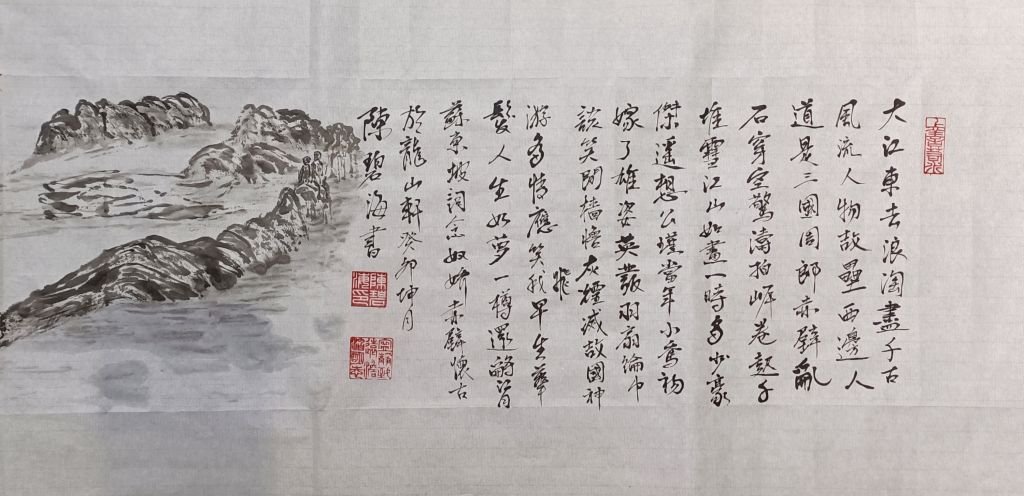 大江東去浪淘盡千古
風流人物故壘西邊人
道是三國周郎赤壁亂
石穿空驚濤拍岸卷起千
堆雪江山如畫一時多少豪
傑遥想公瑾當年小喬初
嫁了雄姿英發羽扇綸巾
談笑間檣櫓灰煙滅故國神
飛
游多情應笑我早生華
髮人生如夢一樽還酹江月
蘇東坡詞念奴嬌赤壁懷古
於龍山軒癸卯坤月
陳碧海書